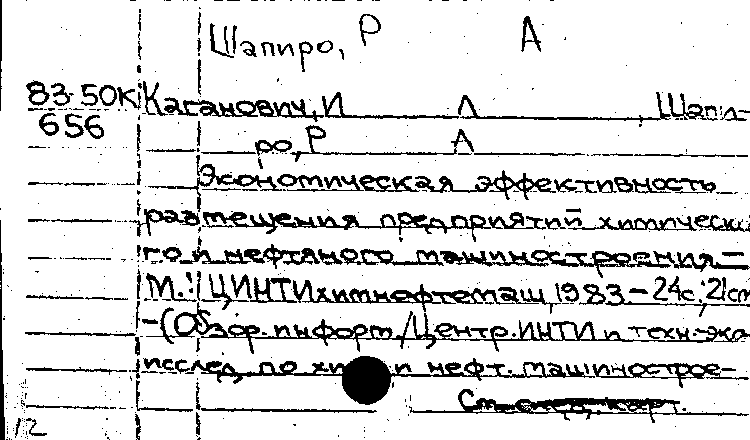 Шапиро, Р А
83-50К Каганович, И Л , Шапи-
656 ро, Р А
Экономическая эффективность
размещения предприятий химическо
го и нефтяного машиностроения.—
М.: ЦИНТИхимнефтемаш, 1983 – 24с; 21cm
-(Обзор. информ./Центр. ИНТИ и техн.-эко
исслед. по хим и нефт. машинострое-
См. след. карт.
12